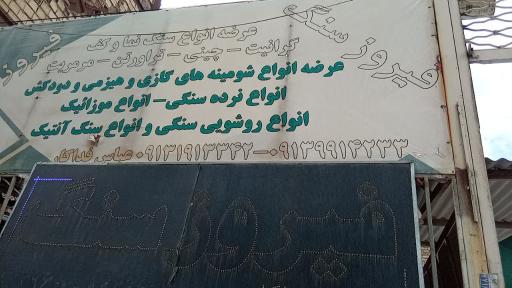 فیروز سنگ
عرضه انواع سنگ نما و کف
گرانیت - چینی - تراورتن - مرمریت
عرضه انواع شومینه های گازی و هیزمی و دودکش
انواع نرده سنگی - انواع موزائیک
انواع روشویی سنگی و انواع سنگ آنتیک
۰۹۱۳۹۹۱۴۲۳۳-۰۹۱۳۱۹۱۳۳۴۲ عباس فداکار
فیروز
فیروز سنگ